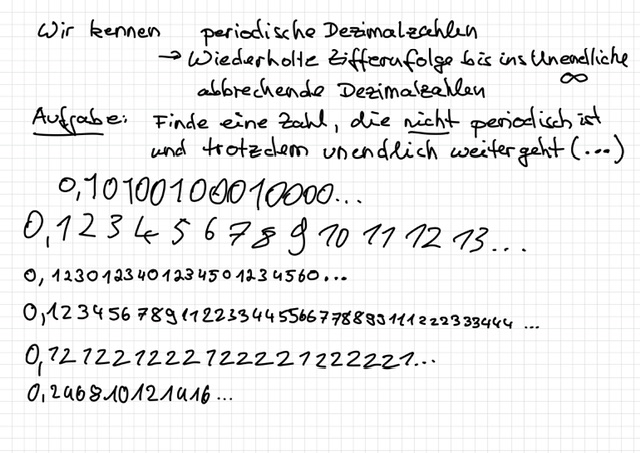 Wir kennen periodische Dezimalzahlen
→ Wiederholte Ziffernfolge bis ins Unendliche
∞
abbrechende Dezimalzahlen
Aufgabe: Finde eine Zahl, die nicht periodisch ist
und trotzdem unendlich weitergeht (...)
0,101001000010000...
0,1 2 3 4 5 6 7 8 9 10 11 12 13...
0,1230123401234501234560...
0,123456789112233445566778899111222333444 ...
0,12122122212222122222 1...
0,246810121416...